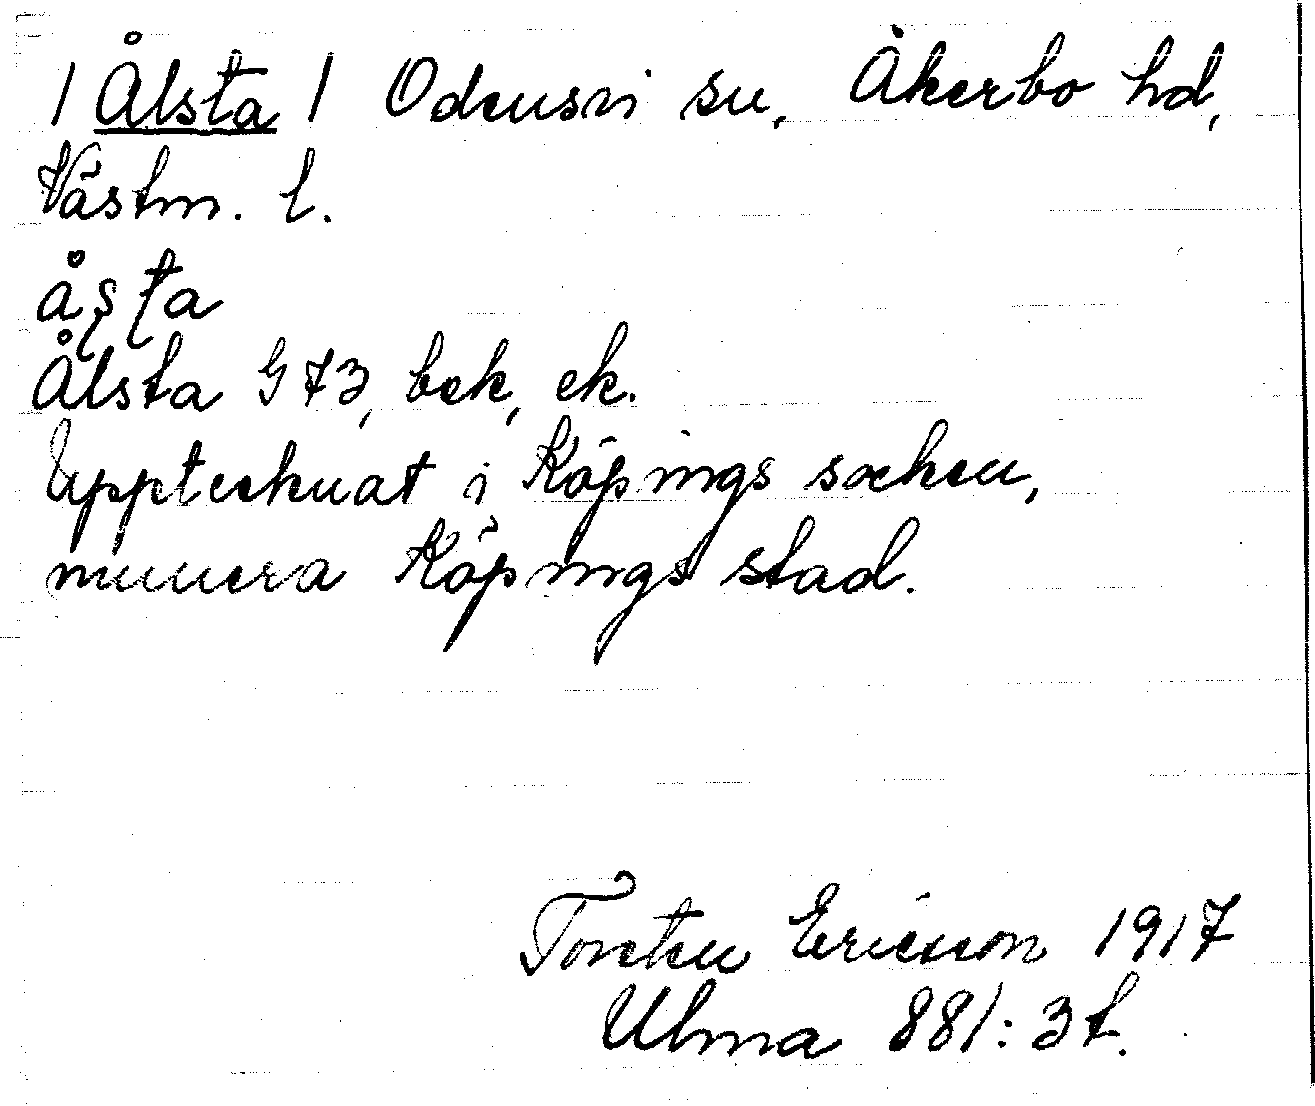 / Ålsta / Odensvi sn, Åkerbo hd,
Västm. l.
åʂʈa
Ålsta G 73, bek, ek.
Upptecknat i Köpings socken,
numera Köpings stad.
Torsten Ericsson 1917
Ulma 881:3 f.